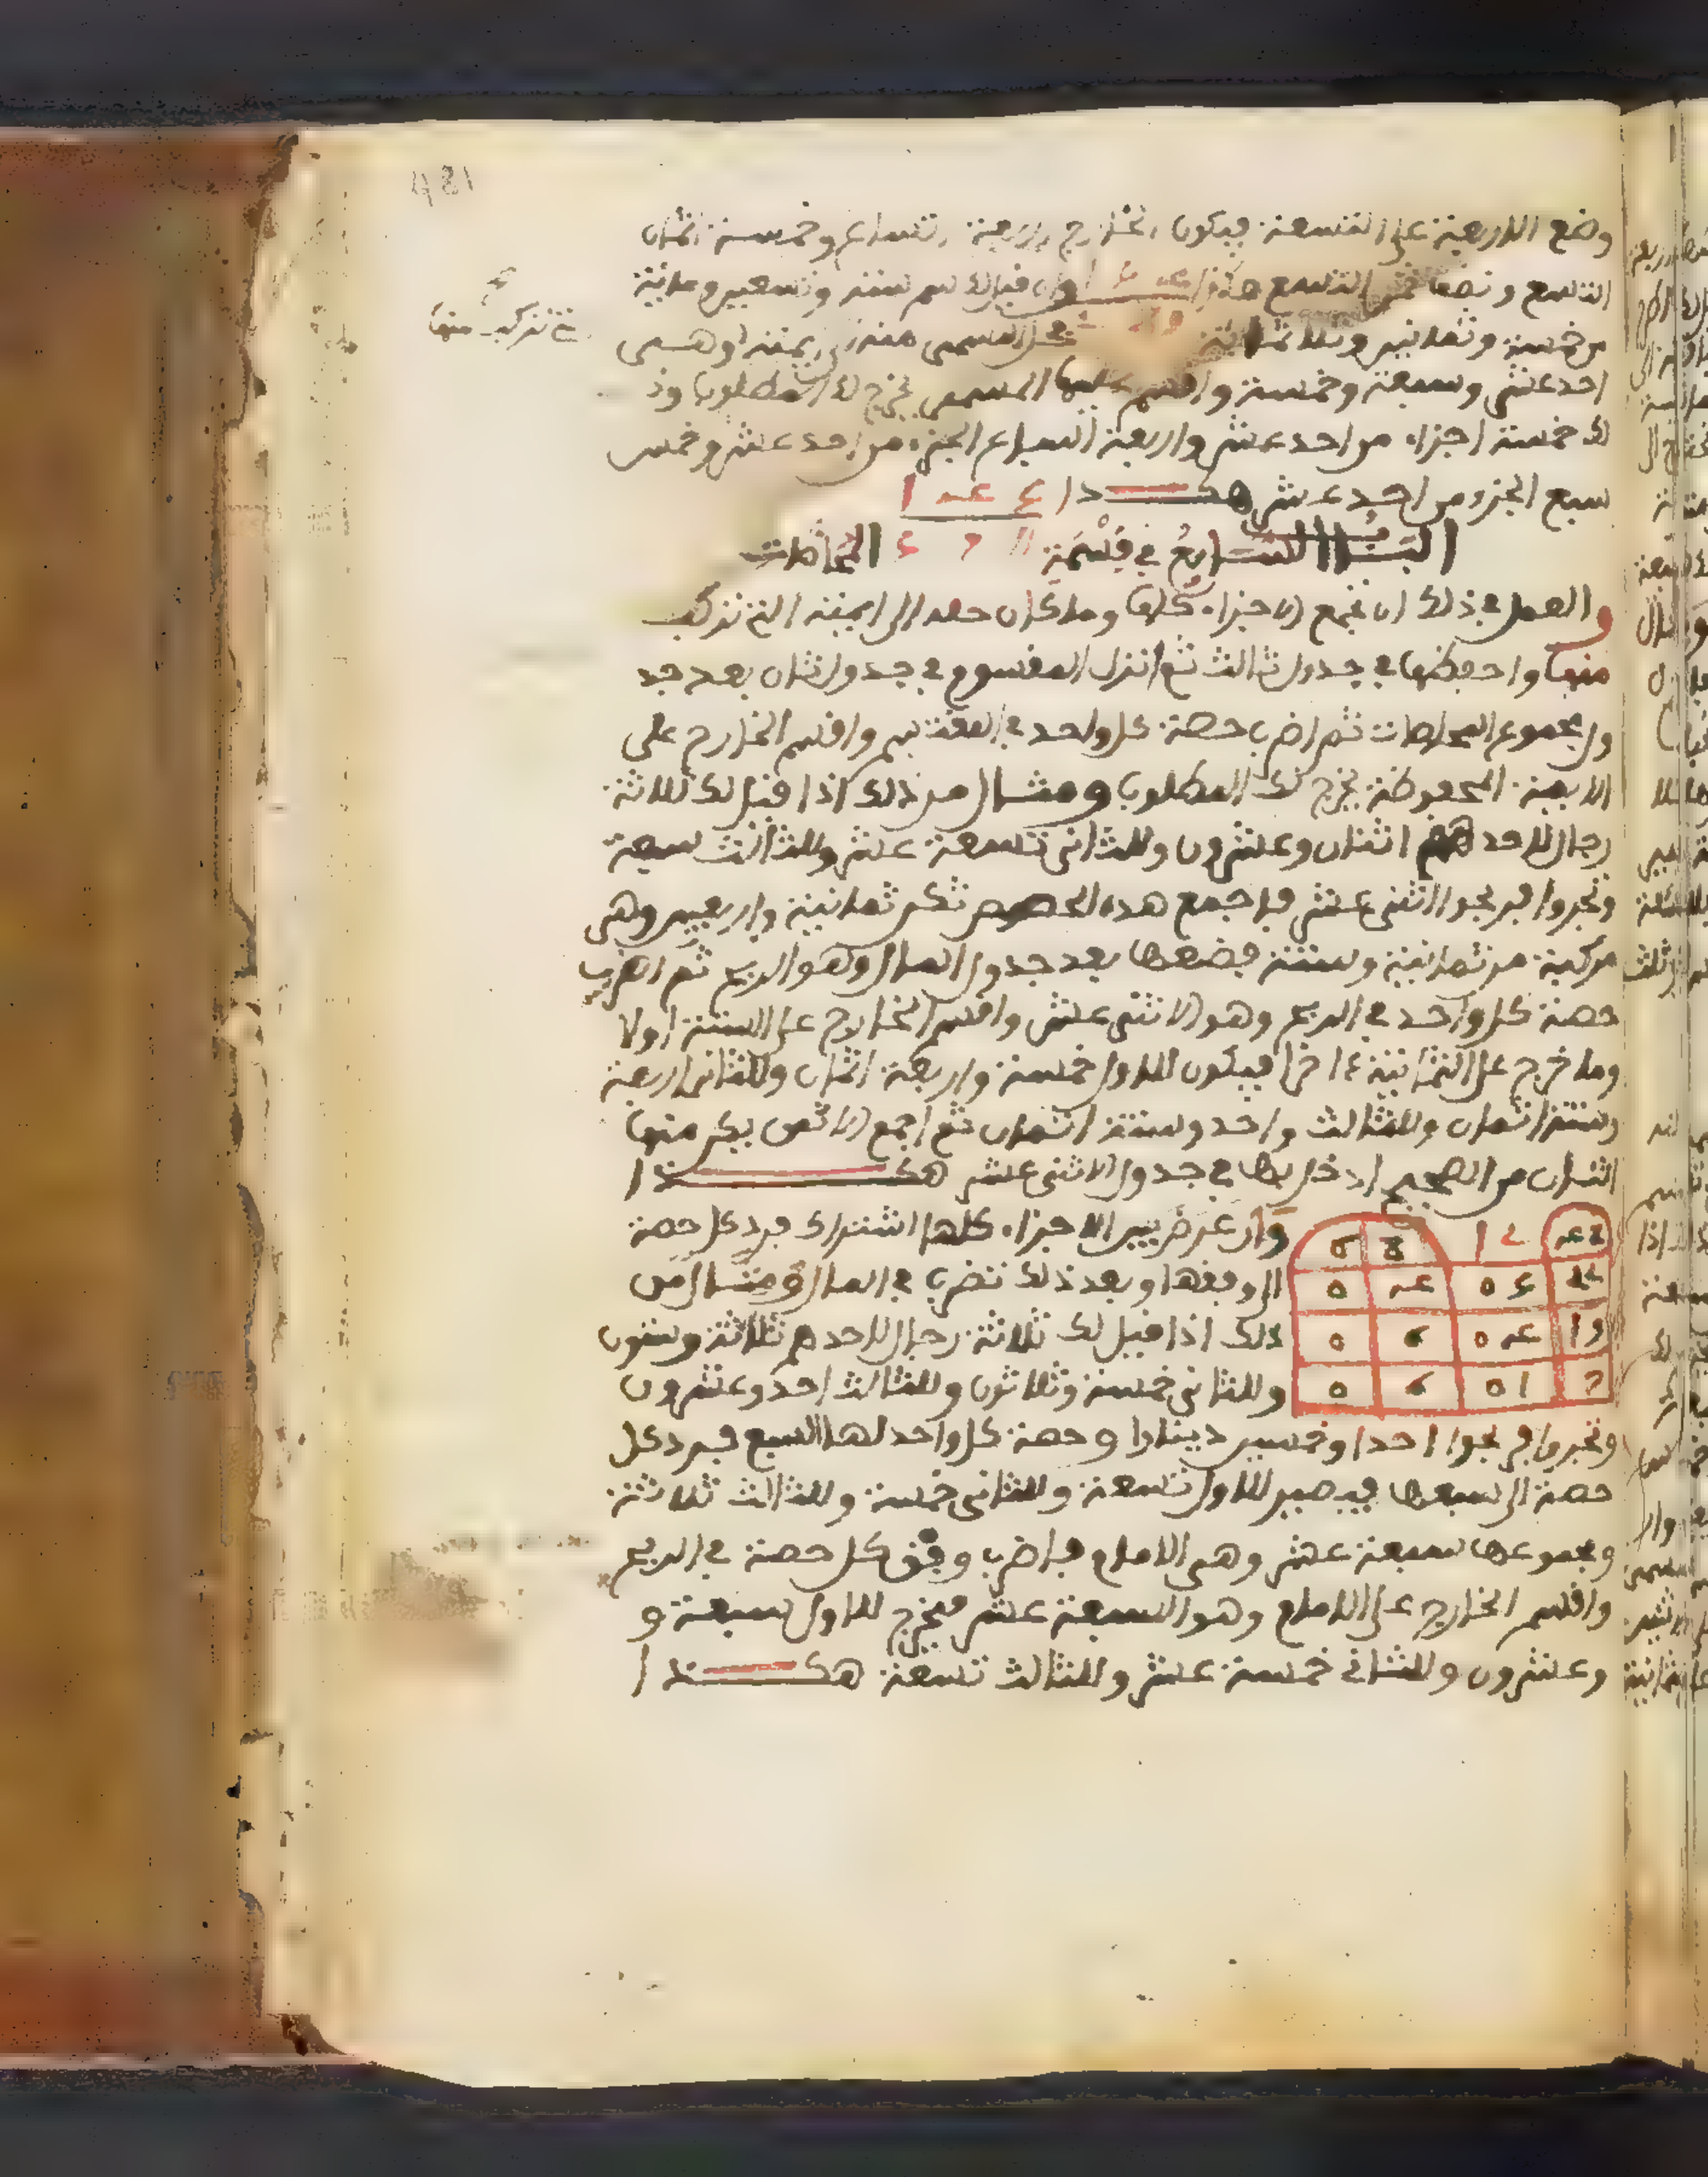 وضع الاربعة على التسعة فيكون الخارج اربعة اتساع وخمسة اثمان
التسع ونصف ثمن التسع هكذا وان قيل لك سم ستة وتسعين ومائة
من خمسة وثمانين وثلاثمائة فحل المسمى منه الى ايمته وهي
التي تركب منها
احد عشر وسبعة وخمسة واقسم عليها المسمى يخرج لك المطلوب وذ
لك خمسة اجزاء من احد عشر واربعة اسباع الجزء من احد عشر وخمس
سبع الجزء من احد عشر هكـــذا
البـــاب السابع في قسمة المحاصات
والعمل في ذلك ان تجمع الاجزاء كلها وما كان حله الى ايمته التي تركب
منها واحفظها في جدول ثالث ثم انزل المقسوم في جدول ثان بعد جد
ول مجموع المحاصات ثم اضرب حصة كل واحد في المقسوم واقسم الخارج على
الايمة المحفوظة يخرج لك المطلوب ومثـــال من ذلك اذا قيل لك ثلاثة
رجال لاحدهم اثنان وعشرون وللثاني تسعة عشر وللثالث سبعة
وتجروا فربحوا اثنى عشر فاجمع هذه الحصص تكن ثمانية واربعين وهي
مركبة من ثمانية وستة فضعها بعد جدول المال وهو الربح ثم اضرب
حصة كل واحد في الربح وهو الاثنى عشر واقسم الخارج على الستة اولا
وما خرج على الثمانية ءاخرا فيكون للاول خمسة واربعة اثمان وللثاني اربعة
وستة اثمان وللثالث واحد وستة اثمان ثم اجمع الاثمن يكن منها
اثنان من الصحيح ادخل بها في جدول الاثنى عشر هكـــــذا
وان عرض بين الاجزاء كلها اشتراك فرد كل حصة
الى وفقها وبعد ذلك تضرب في المال ومثـــال من
ذلك اذا قيل لك ثلاثة رجال لاحدهم ثلاثة وستون
وللثاني خمسة وثلاثون وللثالث احد وعشرون
وتجروا فربحوا احدا وخمسين دينارا وحصة كل واحد لها السبع فرد كل
حصة الى سبعها فيصير للاول تسعة وللثاني خمسة وللثالث ثلاثة
ومجموعها سبعة عشر وهي الامام فاضرب وفق كل حصة في الربح
واقسم الخارج على الامام وهو السبعة عشر فيخرج للاول سبعة و
وعشرون وللثاني خمسة عشر وللثالث تسعة هكـــذا